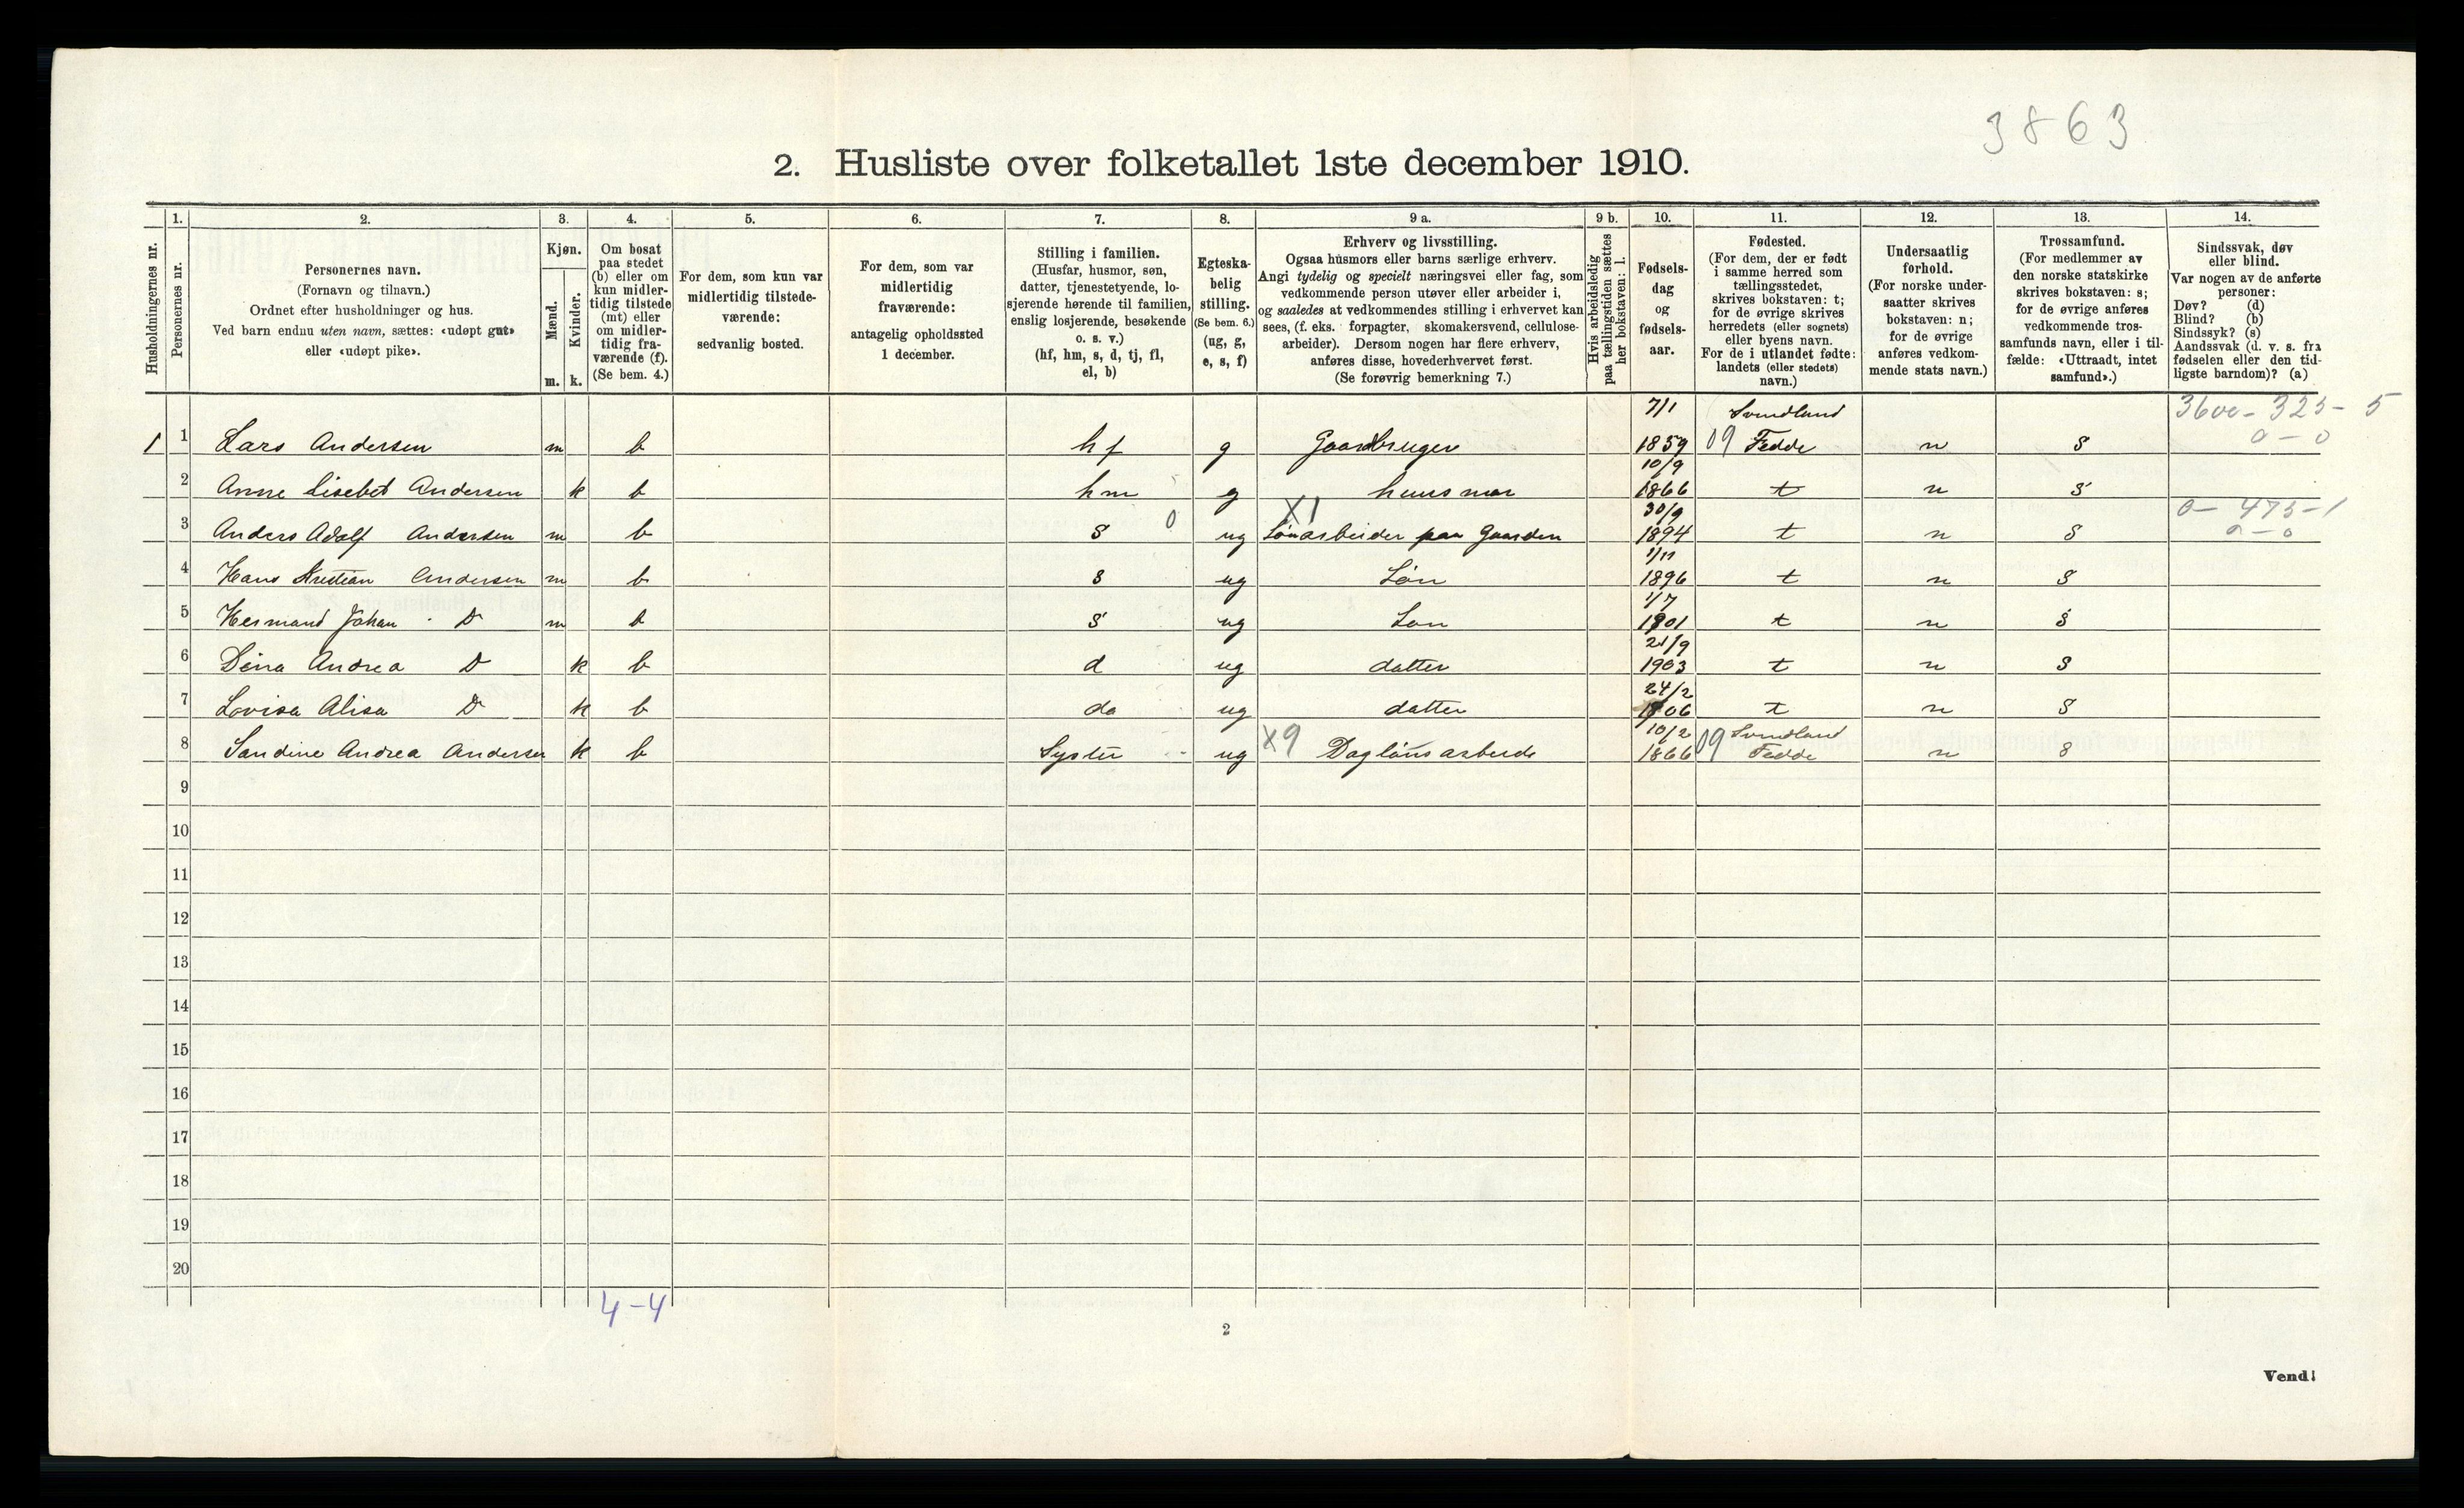 3863
2. Husliste over folketallet 1ste december 1910.
Husholdningernes nr.
1.
Personernes nr.
2.
Personernes navn.
(Fornavn og tilnavn.)
Ordnet efter husholdninger og hus.
Ved barn endnu uten navn, sættes: «udøpt gut»
eller «udøpt pike».
3.
Kjøn.
Mænd.
m.
Kvinder.
k.
4.
Om bosat
paa stedet
(b) eller om
kun midler-
tidig tilstede
(mt) eller
om midler-
tidig fra-
værende (f).
(Se bem. 4.)
5.
For dem, som kun var
midlertidig tilstede-
værende:
sedvanlig bosted.
6.
For dem, som var
midlertidig
fraværende:
antagelig opholdssted
1 december.
7.
Stilling i familien.
(Husfar, husmor, søn,
datter, tjenestetyende, lo-
sjerende hørende til familien,
enslig losjerende, besøkende
o. s. v.)
(hf, hm, s, d, tj, fl,
el, b)
8.
Egteska-
belig
stilling.
(Se bem. 6.)
(ug, g,
e, s, f)
9 a.
Erhverv og livsstilling.
Ogsaa husmors eller barns særlige erhverv.
Angi tydelig og specielt næringsvei eller fag, som
vedkommende person utøver eller arbeider i,
og saaledes at vedkommendes stilling i erhvervet kan
sees, (f. eks. forpagter, skomakersvend, cellulose-
arbeider). Dersom nogen har flere erhverv,
anføres disse, hovederhvervet først.
(Se forøvrig bemerkning 7.)
9 b.
Hvis arbeidsledig
paa tællingstiden sættes
her bokstaven: l.
10.
Fødsels-
dag
og
fødsels-
aar.
11.
Fødested.
(For dem, der er født
i samme herred som
tællingsstedet,
skrives bokstaven: t;
for de øvrige skrives
herredets (eller sognets)
eller byens navn.
For de i utlandet fødte:
landets (eller stedets)
navn.)
12.
Undersaatlig
forhold.
(For norske under-
saatter skrives
bokstaven: n;
for de øvrige
anføres vedkom-
mende stats navn.)
13.
Trossamfund.
(For medlemmer av
den norske statskirke
skrives bokstaven: s;
for de øvrige anføres
vedkommende tros-
samfunds navn, eller i til-
fælde: «Uttraadt, intet
samfund».)
14.
Sindssvak, døv
eller blind.
Var nogen av de anførte
personer:
Døv? (d)
Blind? (b)
Sindssyk? (s)
Aandssvak (d. v. s. fra
fødselen eller den tid-
ligste barndom)? (a)
1 1 Lars Andersen m b hf g Gaardbruger 7/1 1859 09 Fedde n S 3600 - 325 - 5 0 - 0
2 Anne Lisebet Andersen k b hm g huusmor 10/9 1866 t n S
3 Anders Adolf Andersen m b S 0 ug X1 Lønarbeider paa Gaarden 30/9 1894 t n S 0 - 475 - 1 0 - 0
4 Hans Kristian Andersen m b s ug Søn 1/11 1896 t n S
5 Hermand Johan D m b S ug Søn 1/7 1901 t n S
6 Dina Andrea D k b d ug datter 21/9 1903 t n S
7 Lovisa Alisa D k b do ug datter 24/2 1906 t n S
8 Sandine Andrea Andersen k b Syster ug X9 Daglønsarbeide 10/2 1866 09 Fedde n S
9
10
11
12
13
14
15
16
17
18
19
20
4-4
2
Vend!